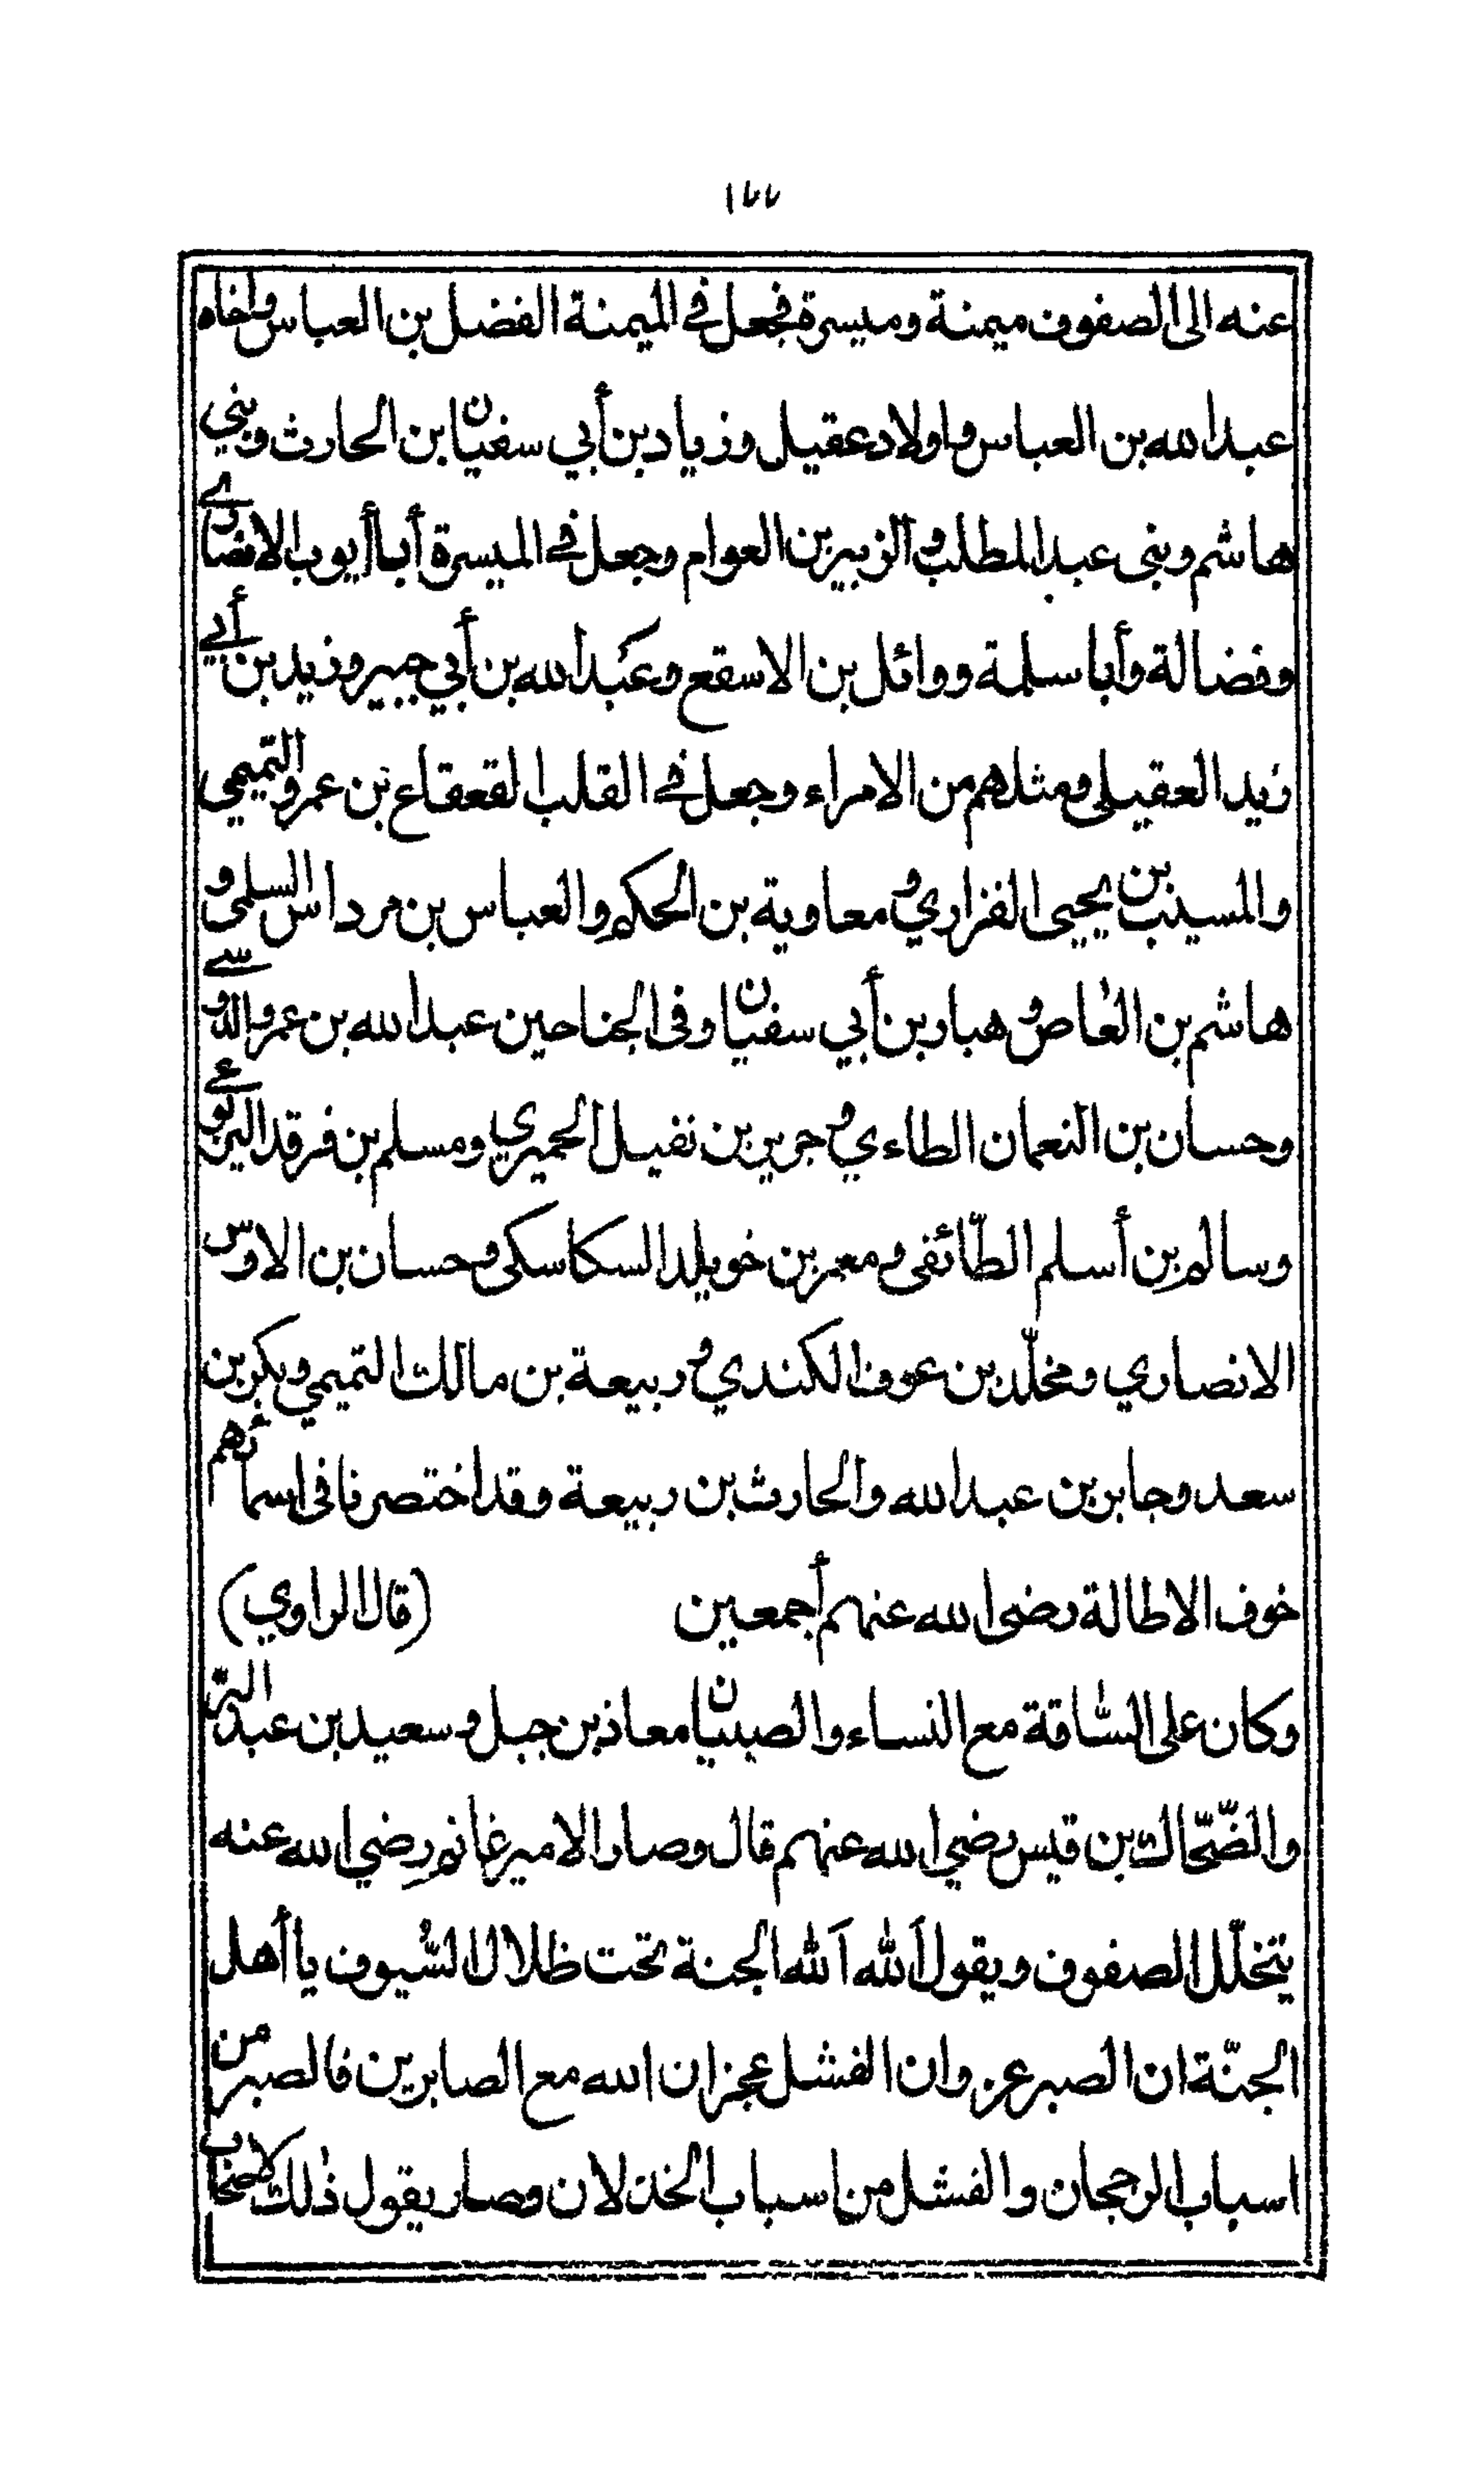 ١٧٧
عنه الى الصفوف ميمنة وميسرة فجعل في الميمنة الفضل بن العباس واخاه
عبد الله بن العباس واولاد عقيل وزياد بن أبي سفيان بن الحارث وبني
هاشم وبنى عبد المطلب والزبير بن العوام وجعل في الميسرة أبا أيوب الانصاري
وفضالة وأبا سلمة ووائل بن الاسقع وعبد الله بن أبي جبير وزيد بن أبي
زيد العقيلى ومثلهم من الامراء وجعل في القلب القعقاع بن عمرو التميمي
والمسيب بن يحيى الفزاري ومعاوية بن الحكم والعباس بن مرداس السلمى و
هاشم بن العاص وهبار بن أبي سفيان وفى الجناحين عبد الله بن عمرو الدوسي
وحسان بن النعمان الطاءي وجرير بن نفيل الحميري ومسلم بن فرقد اليربوعي
وسالم بن أسلم الطّائفى ومعمر بن خويلد السكاسكى وحسان بن الاوس
الانصاري ومخلّد بن عوف الكندي وربيعة بن مالك التميمي وبكر بن
سعد وجابر بن عبد الله والحارث بن ربيعة وقد اختصرنا فى اسمائهم
خوف الاطالة رضى الله عنهم أجمعين (قال الراوي)
وكان على السّاقة مع النساء والصبيان معاذ بن جبل وسعيد بن عبد
والضّحّاك بن قيس رضي الله عنهم قال وصار الامير غانم رضي الله عنه
يتخلّل الصفوف ويقول اَلله اَلله الجنة تحت ظلال السّيوف يا أهل
الجنّة ان الصبر عز وان الفشل عجز ان الله مع الصابرين فالصبر من
اسباب الرجحان والفشل من اسباب الخذلان وصار يقول ذلك لاصحاب